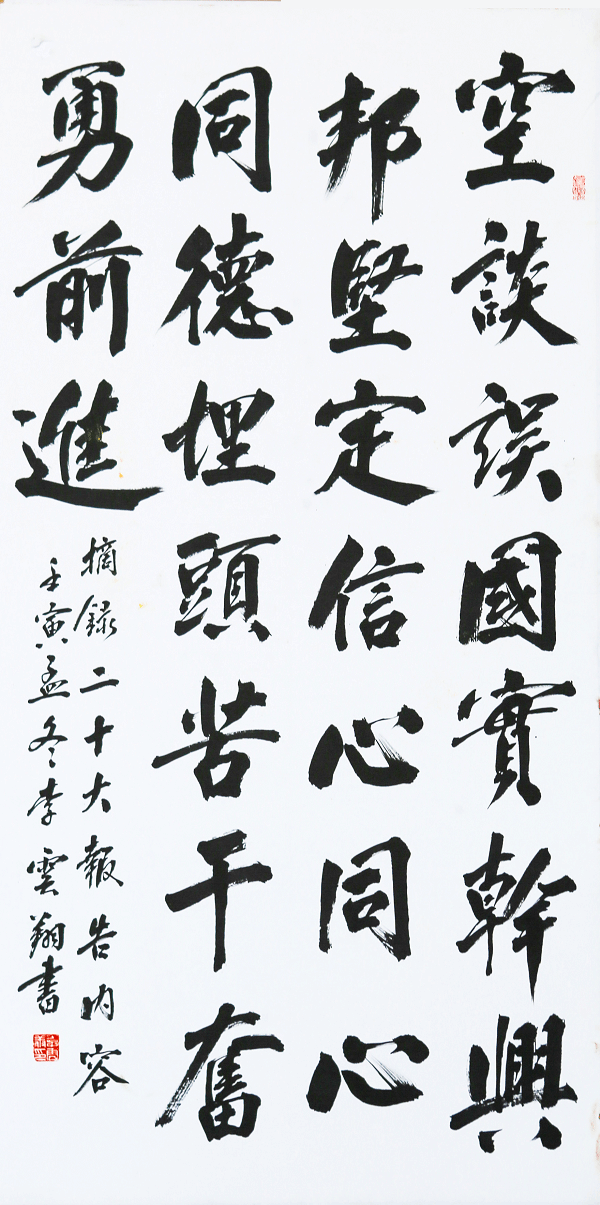 空談誤國實幹興
邦堅定信心同心
同德埋頭苦干奮
勇前進
摘録二十大報告内容
壬寅孟冬李雲翔書